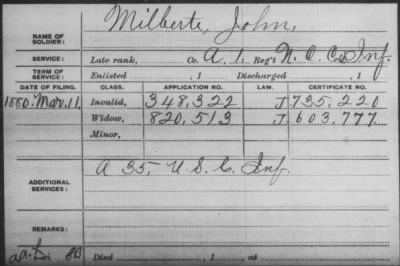 Milberte, John,
NAME OF SOLDIER:
SERVICE: Late rank, Co. A, 1, Reg't N. C. Cd Inf.
TERM OF SERVICE: Enlisted , 1 Discharged , 1
DATE OF FILING. CLASS. APPLICATION NO. LAW. CERTIFICATE NO.
1880. Mar. 11. Invalid, 348,322 J 735,220
Widow, 820,513 J 603,777
Minor,
A 35, U. S. C. Inf.
ADDITIONAL SERVICES:
REMARKS:
Died , 1 , at